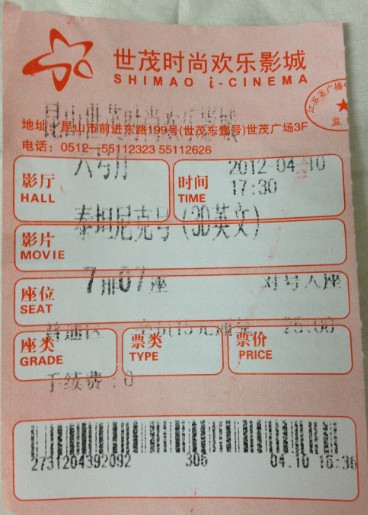 世茂时尚欢乐影城
SHIMAO i-CINEMA
昆山世茂时尚欢乐影城
地址:昆山市前进东路199号(世茂东壹号)世茂广场3F
电话:0512-55112323 55112626
影厅
HALL
六号厅
时间
TIME
2012-04-10
17:30
影片
MOVIE
泰坦尼克号(3D英文)
座位
SEAT
7排07座
对号入座
座类
GRADE
普通区
票类
TYPE
票价
PRICE
25.00
手续费:0
2731204392092
306
04.10 16:36